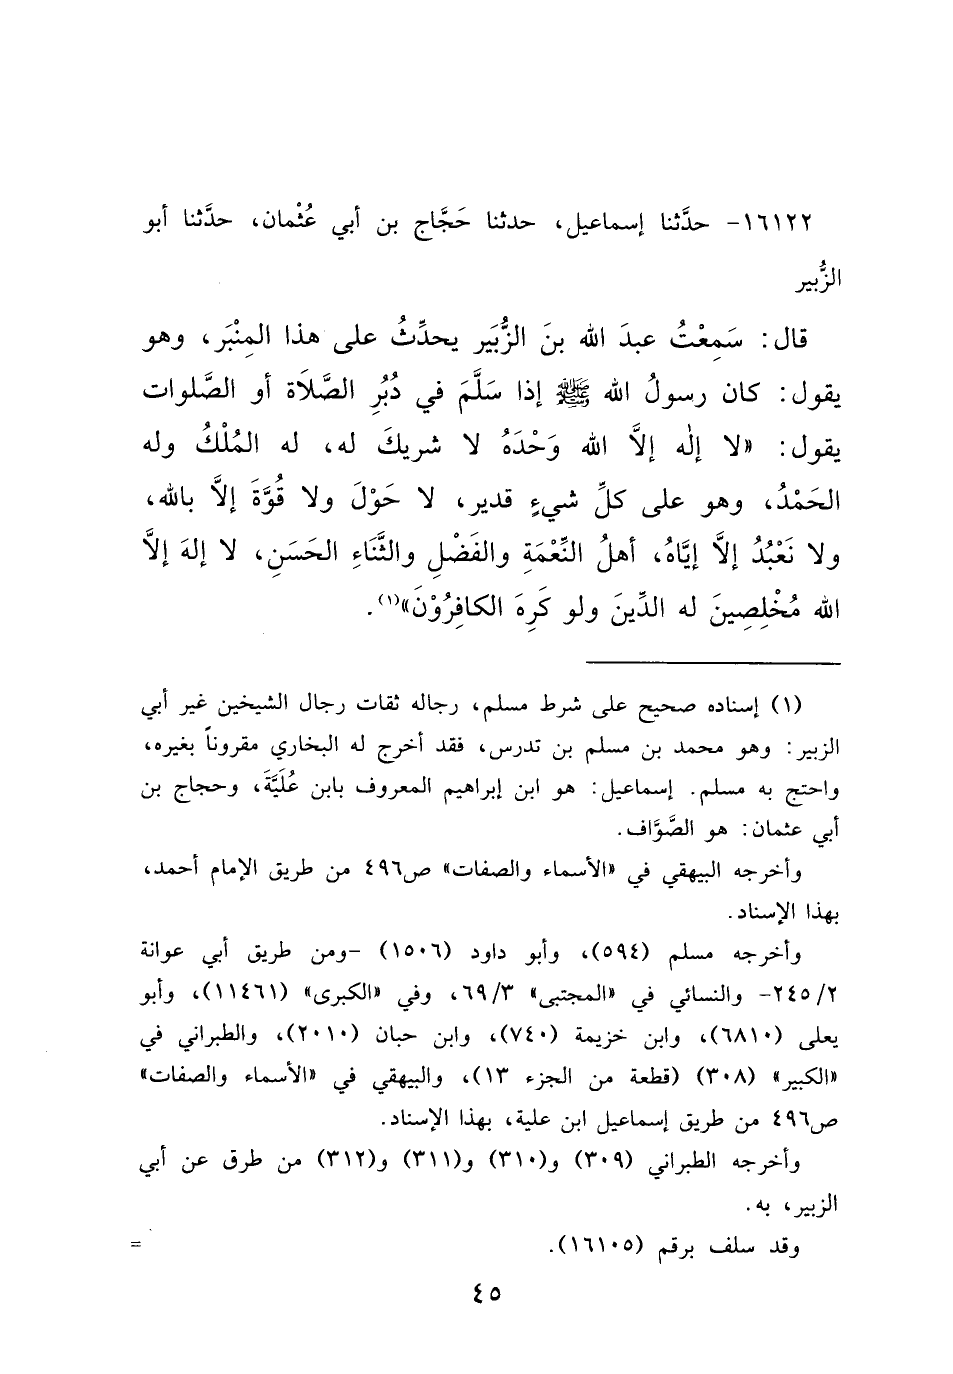 ١٦١٢٢- حدَّثنا إسماعيل، حدثنا حَجَّاج بن أبي عُثْمان، حدَّثنا أبو
الزُّبير
قال: سَمِعْتُ عبدَ الله بنَ الزُّبَير يحدِّثُ على هذا المِنْبَر، وهو
يقول: كان رسولُ الله ﷺ إذا سَلَّمَ في دُبُرِ الصَّلَاة أو الصَّلوات
يقول: «لا إلٰه إلاَّ الله وَحْدَهُ لا شريكَ له، له المُلْكُ وله
الحَمْدُ، وهو على كلِّ شيءٍ قدير، لا حَوْلَ ولا قُوَّةَ إلاَّ بالله،
ولا نَعْبُدُ إلاَّ إيَّاهُ، أهلُ النِّعْمَةِ والفَضْلِ والثَّنَاءِ الحَسَنِ، لا إلهَ إلاَّ
الله مُخْلِصِينَ له الدِّينَ ولو كَرِهَ الكافِرُوْنَ»(١).
(١) إسناده صحيح على شرط مسلم، رجاله ثقات رجال الشيخين غير أبي
الزبير: وهو محمد بن مسلم بن تدرس، فقد أخرج له البخاري مقروناً بغيره،
واحتج به مسلم. إسماعيل: هو ابن إبراهيم المعروف بابن عُلَيَّةَ، وحجاج بن
أبي عثمان: هو الصَّوَّاف.
وأخرجه البيهقي في «الأسماء والصفات» ص٤٩٦ من طريق الإمام أحمد،
بهذا الإسناد.
وأخرجه مسلم (٥٩٤)، وأبو داود (١٥٠٦) -ومن طريق أبي عوانة
٢/٢٤٥- والنسائي في «المجتبى» ٦٩/٣، وفي «الكبرى» (١١٤٦١)، وأبو
يعلى (٦٨١٠)، وابن خزيمة (٧٤٠)، وابن حبان (٢٠١٠)، والطبراني في
«الكبير» (٣٠٨) (قطعة من الجزء ١٣)، والبيهقي في «الأسماء والصفات»
ص٤٩٦ من طريق إسماعيل ابن علية، بهذا الإسناد.
وأخرجه الطبراني (٣٠٩) و(٣١٠) و(٣١١) و(٣١٢) من طرق عن أبي
الزبير، به.
وقد سلف برقم (١٦١٠٥). =
٤٥